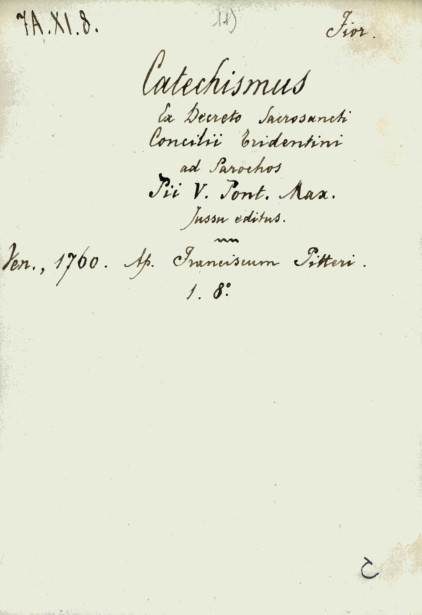 7A.XI.8.
Fior.
Catechismus
Ex Decreto Sacrosancti
Concilii Tridentini
ad Parochos
Pii V. Pont. Max.
Jussu editus.
Ven., 1760. Ap. Franciscum Pitteri.
1. 8º